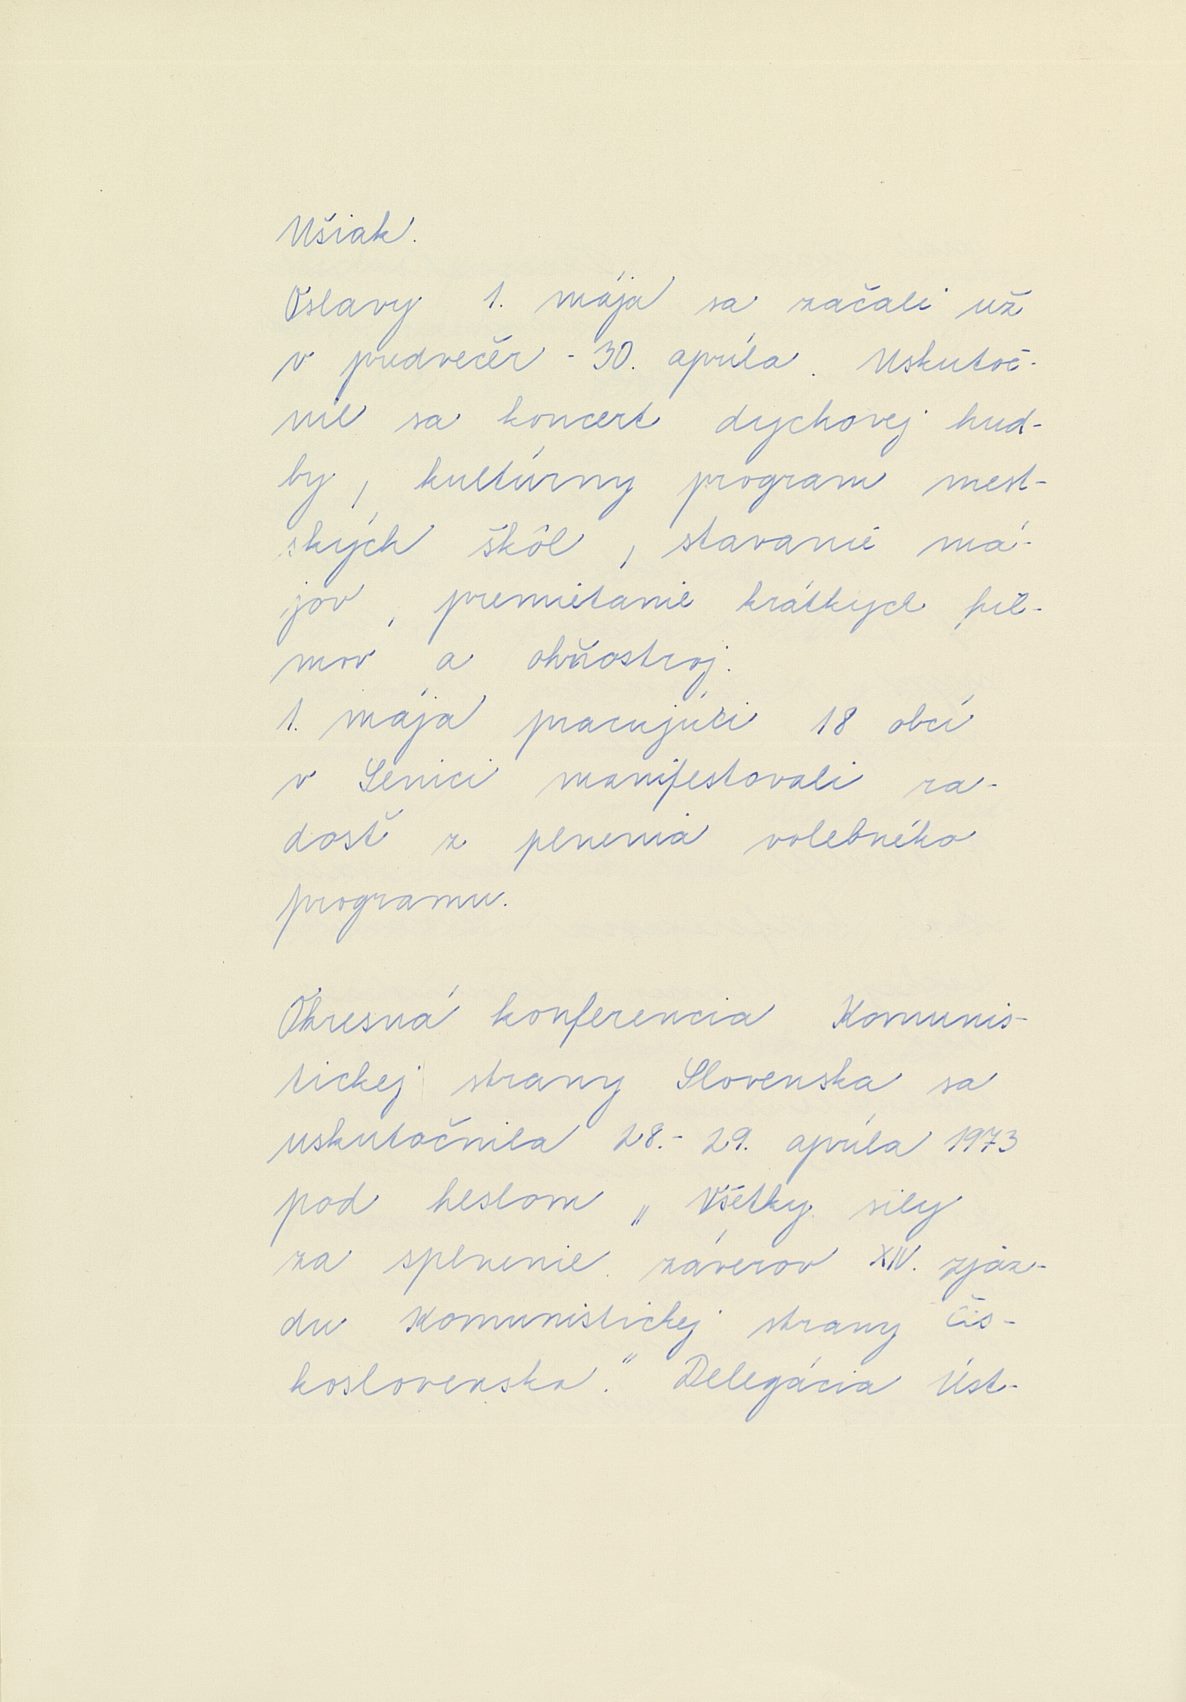 Ušiak.
Oslavy 1. mája sa začali už
v predvečer - 30. apríla. Uskutoč-
nil sa koncert dychovej hud-
by, kultúrny program mest-
ských škôl, stavanie má-
jov, premietanie krátkych fil-
mov a ohňostroj.
1. mája pracujúci 18 obcí
v Senici manifestovali ra-
dosť z plnenia volebného
programu.
Okresná konferencia Komunis-
tickej strany Slovenska sa
uskutočnila 28.- 29. apríla 1973
pod heslom „Všetky sily
za splnenie záverov XIV. zjaz-
du Komunistickej strany Čes-
koslovenska." Delegácia Úst-